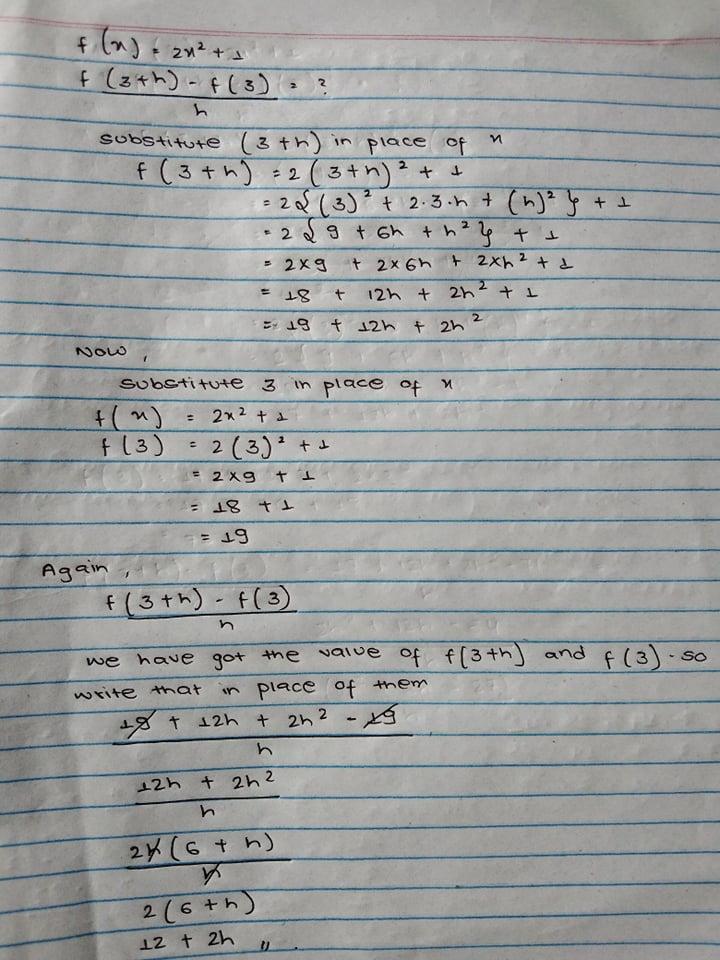 f(x) = 2x² + 1
f(3+h) - f(3) = ?
h
substitute (3+h) in place of x
f(3+h) = 2(3+h)² + 1
= 2{(3)² + 2.3.h + (h)²} + 1
= 2{9 + 6h + h²} + 1
= 2×9 + 2×6h + 2×h² + 1
= 18 + 12h + 2h² + 1
= 19 + 12h + 2h²
Now,
substitute 3 in place of x
f(x) = 2x² + 1
f(3) = 2(3)² + 1
= 2×9 + 1
= 18 + 1
= 19
Again,
f(3+h) - f(3)
h
we have got the value of f(3+h) and f(3). so
write that in place of them
19 + 12h + 2h² - 19
h
12h + 2h²
h
2h(6 + h)
h
2(6+h)
12 + 2h ,,